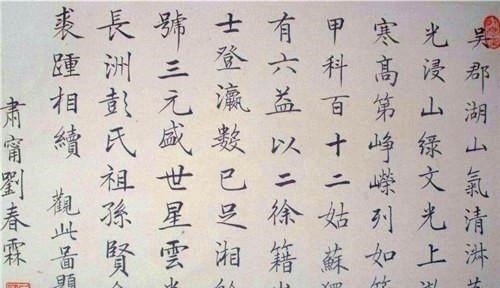 吳郡湖山氣清淑
光浸山綠文光上
寒高第崢嶸列如
甲科百十二姑蘇
有六益以二徐籍
士登瀛數已足湘
號三元盛世星雲
長洲彭氏祖孫賢
裘踵相續 觀此啚題
肅甯劉春霖